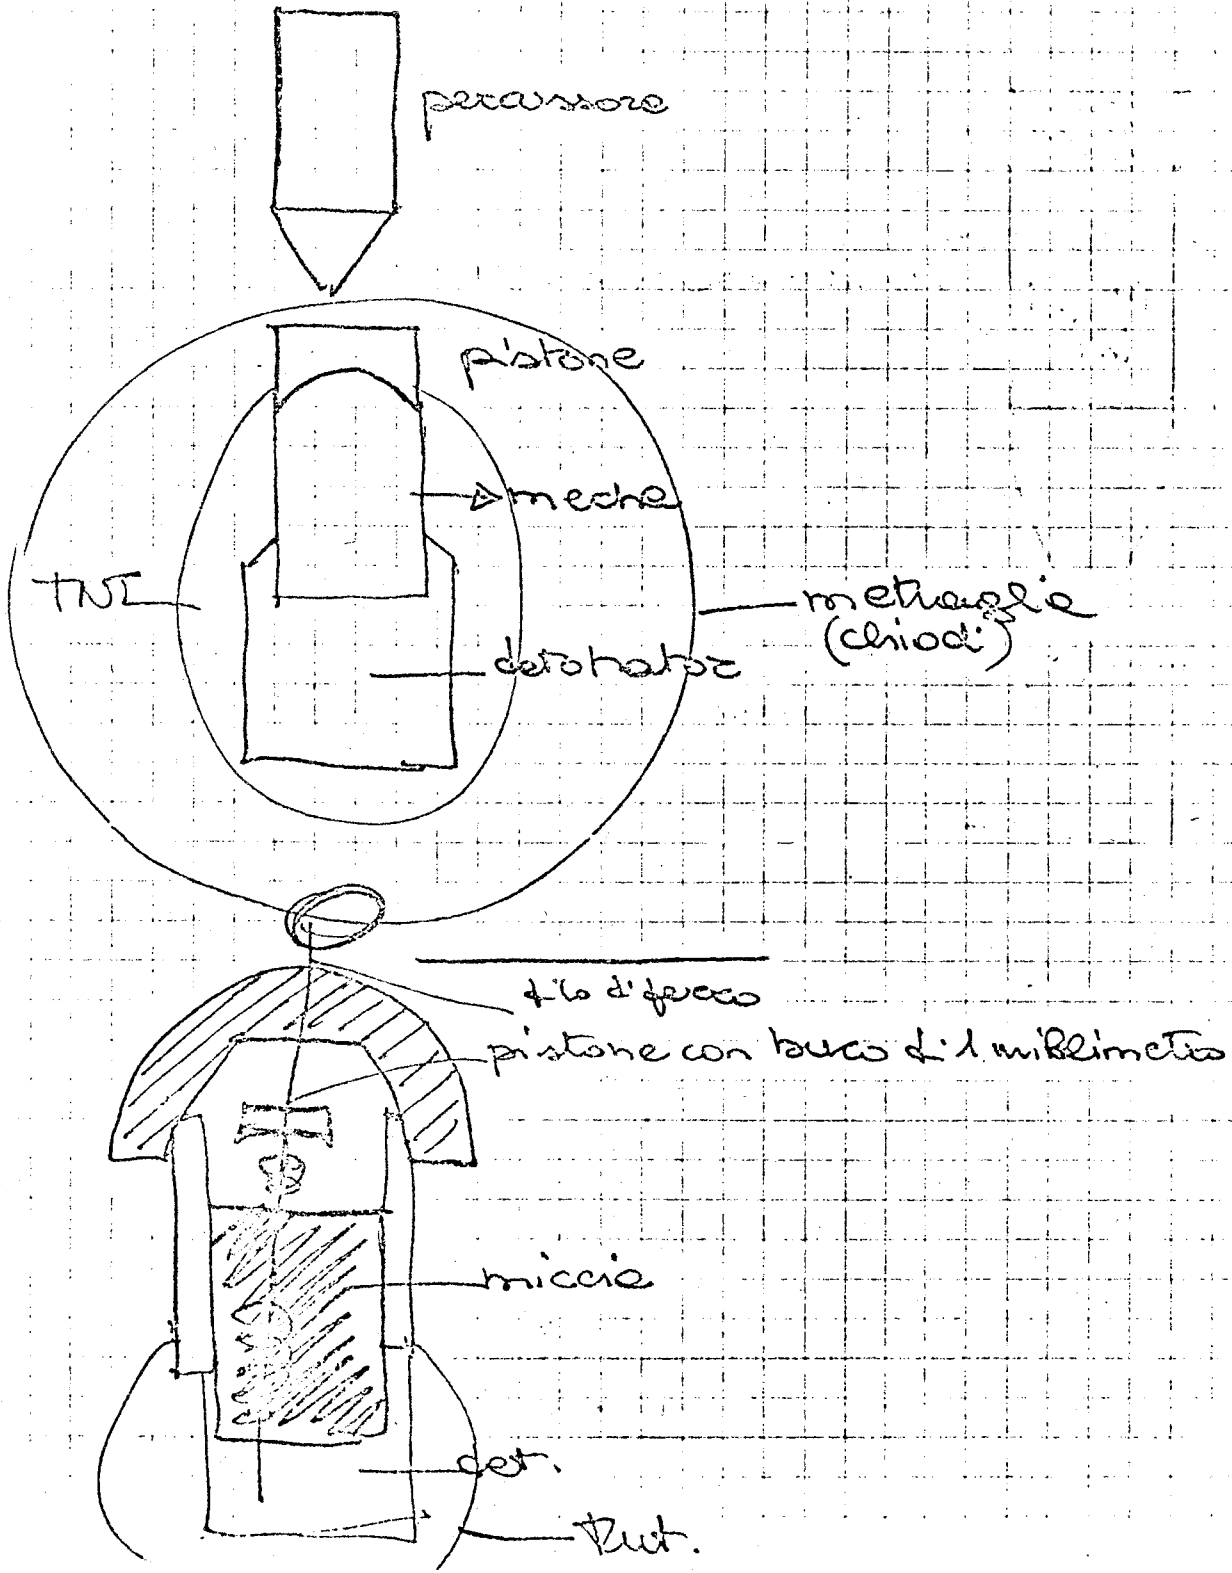 percussore
pistone
mecha
TNT
metraglia
(chiodi)
detonator
filo di ferro
pistone con buco di 1 millimetro
miccia
det.